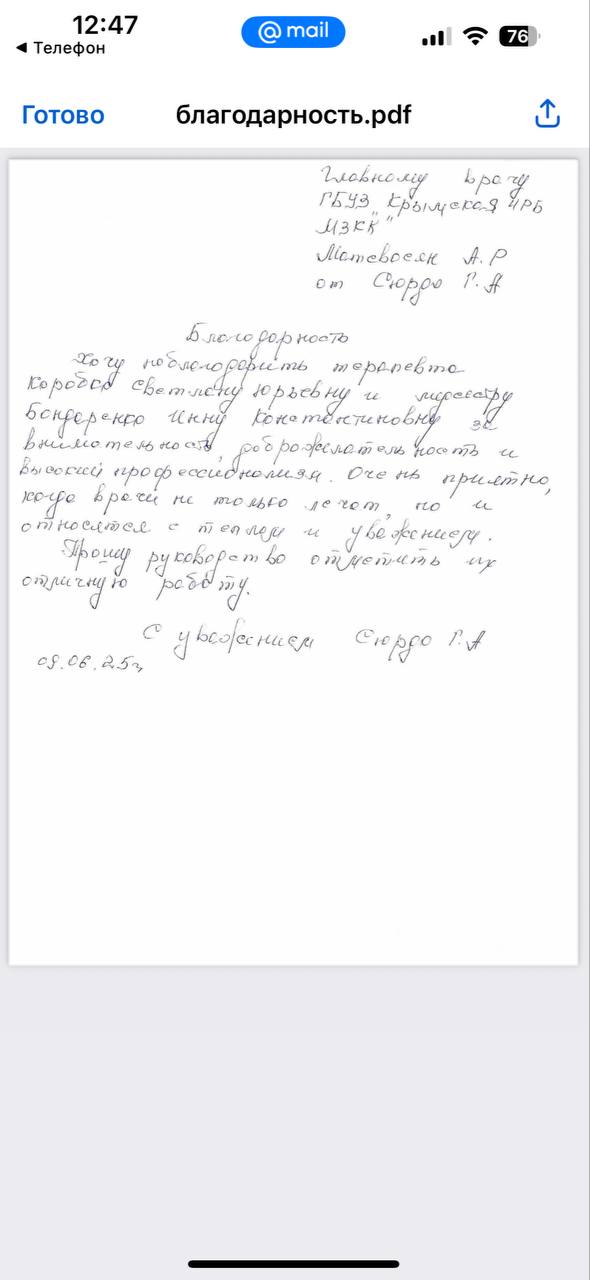 12:47
@mail
76
◀ Телефон
Готово
благодарность.pdf
Главному врачу
ГБУЗ "Крымская ЦРБ
МЗКК"
Матевосян А.Р
от Сюрдо Г.А
Благодарность
Хочу поблагодарить терапевта
Коробка Светлану Юрьевну и медсестру
Бондаренко Инну Константиновну за
внимательность, доброжелательность и
высокий профессионализм. Очень приятно,
когда врачи не только лечат, но и
относятся с теплом и уважением.
Прошу руководство отметить их
отличную работу.
С уважением Сюрдо Г.А
09.06.25г